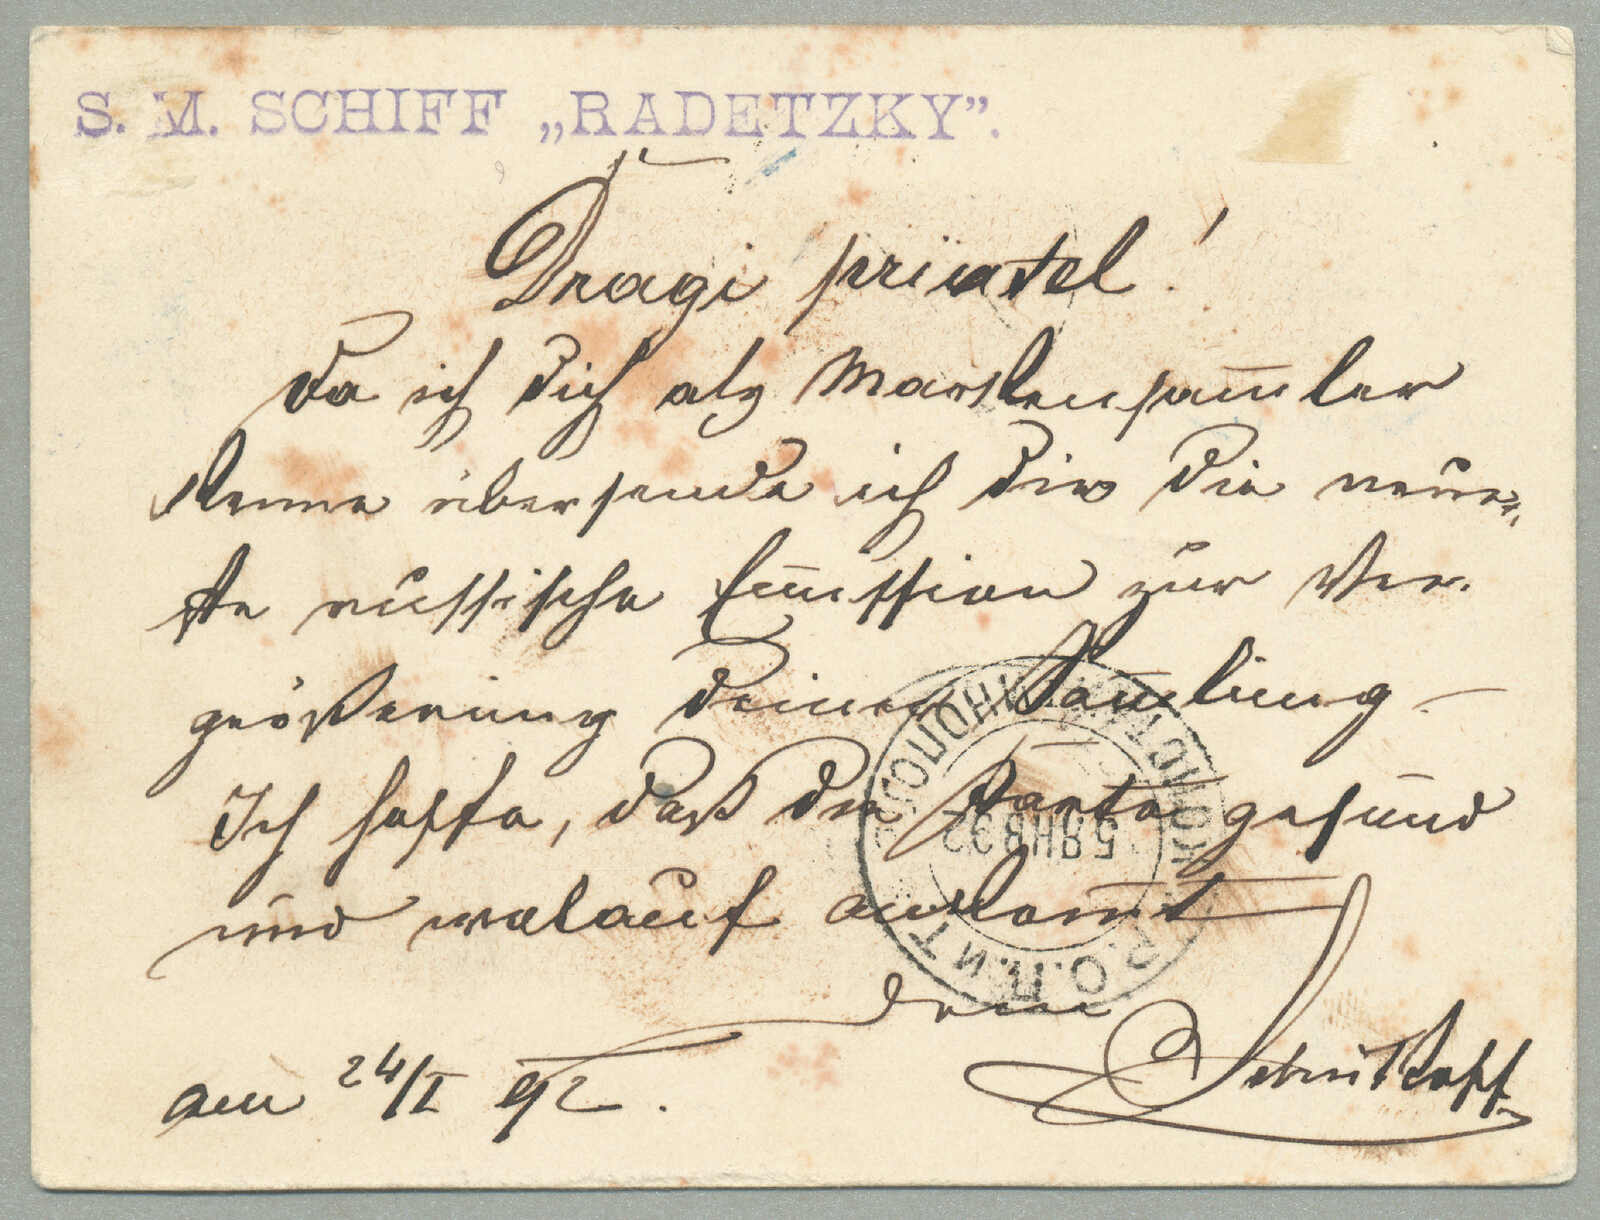 S. M. SCHIFF „RADETZKY”.
Dragi priiatel!
Da ich Dich als Markensam̅ler
kenne übersende ich Dir die neue-
ste russische Em̅ission zur Ver-
größerung Deiner Sam̅lung –
Ich hoffe, daß die Karte gesund
und wolauf ankom̅t
Dein
am 24/I 92.
КОНСТАНТИНОПОЛЬ
5 ЯНВ 92
Р.О.П.иТ.